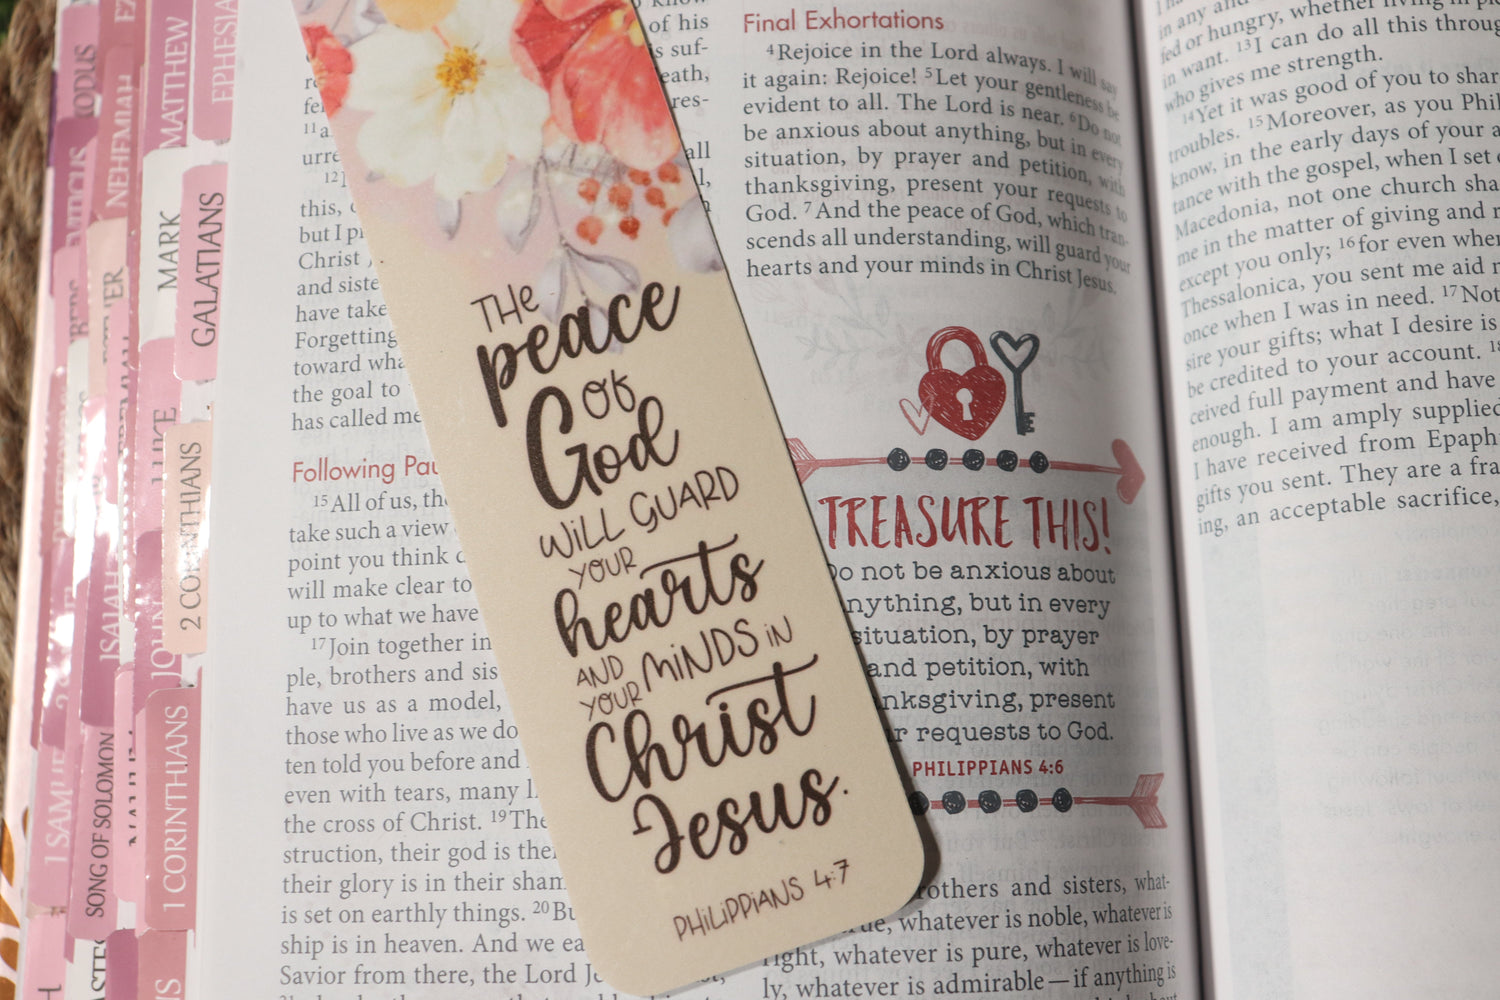 ODUS
NEHEMIAH
MATTHEW
EPHESIA
MARK
GALATIANS
2 CORINTHIANS
SONG OF SOLOMON
1 CORINTHIANS
of his
suf-
eath,
res-
all
11
urre
12
this,
but I
Christ
and siste
have take
Forgetting
toward
the goal to
has called me
Following
15 All of us,
take such a view
point you think
will make clear to
up to what we have
17 Join together in
ple, brothers and sis
have us as a model,
those who live as we do
ten told you before and
even with tears, many
the cross of Christ. 19 The
struction, their god is
their glory is in their sham
is set on earthly things. 20
ship is in heaven. And we ea
Savior from there, the Lord
THe
peace
of
God
WiLL GUARD
YOUR
hearts
AND
YOUR MiNDS iN
Christ
Jesus.
PHiLiPPiANS 4:7
Final Exhortations
4 Rejoice in the Lord always. I will say
it again: Rejoice! 5 Let your gentleness be
evident to all. The Lord is near. 6 Do not
be anxious about anything, but in every
situation, by prayer and petition, with
thanksgiving, present your requests to
God. 7 And the peace of God, which tran-
scends all understanding, will guard your
hearts and your minds in Christ Jesus.
TREASURE THIS!
Do not be anxious about
nything, but in every
situation, by prayer
and petition, with
nksgiving, present
r requests to God.
PHILIPPIANS 4:6
rothers and sisters, what-
ue, whatever is noble, whatever is
right, whatever is pure, whatever is love-
ly, whatever is admirable—if anything is
in any and
fed or hungry, whether living in
in want. 13 I can do all this throug
who gives me strength.
14 Yet it was good of you to shar
troubles. 15 Moreover, as you Phil
know, in the early days of your a
tance with the gospel, when I set
Macedonia, not one church sha
me in the matter of giving and
except you only; 16 for even whe
Thessalonica, you sent me aid
once when I was in need. 17 Not
sire your gifts; what I desire is
be credited to your account. 18
ceived full payment and have
enough. I am amply supplied
I have received from Epaph
gifts you sent. They are a fra
ing, an acceptable sacrifice,